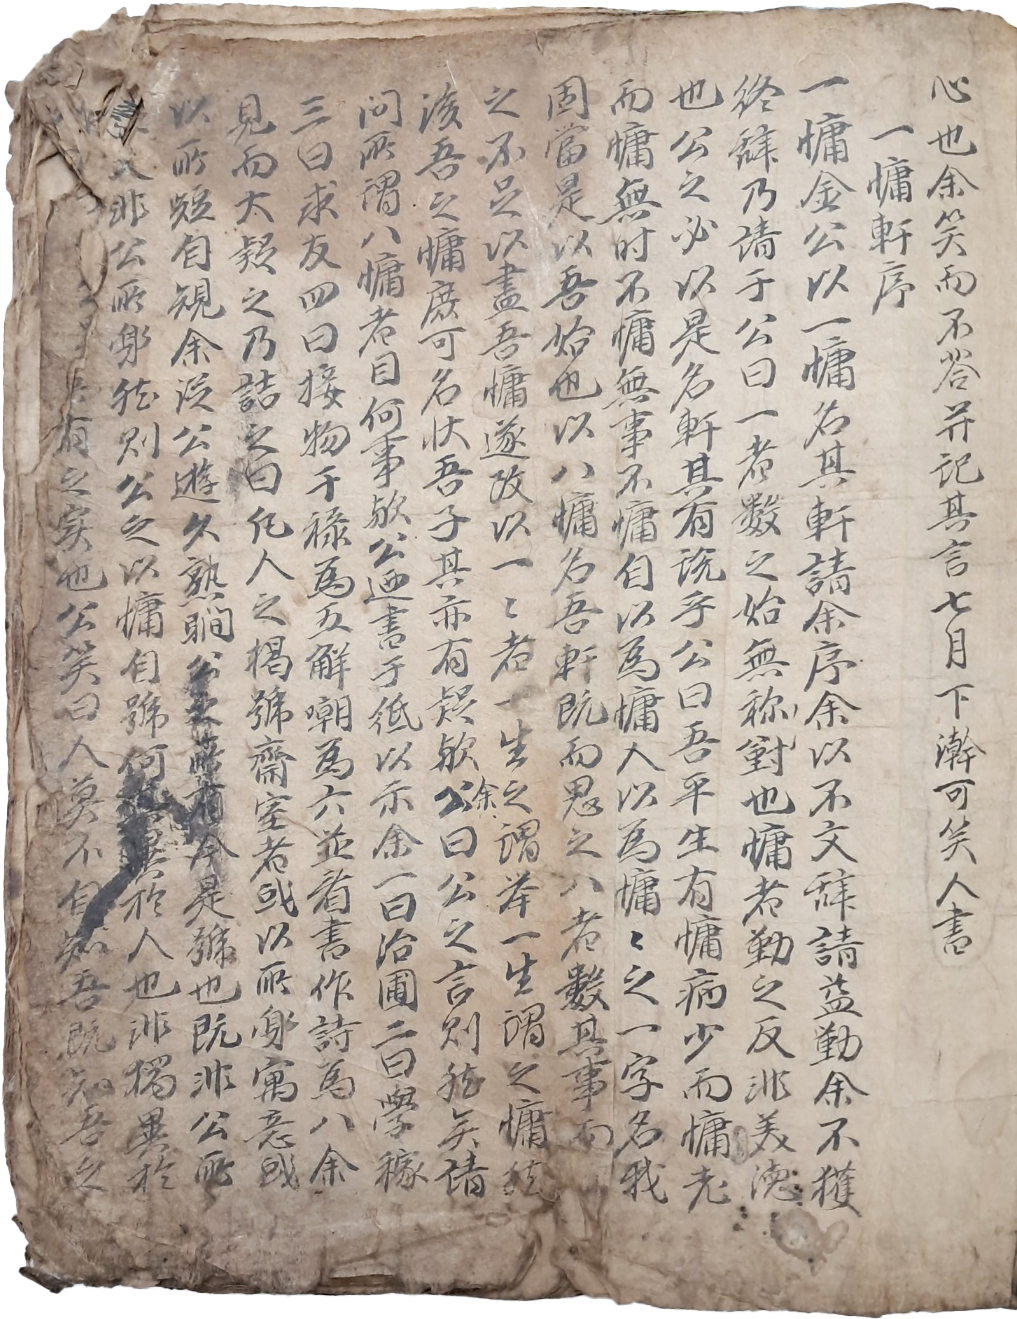 心也余笑而不答并記其言七月下澣可笑人書
一慵軒序
一慵金公以一慵名其軒請余序余以不文辞請益勤余不獲
終辞乃請于公曰一者數之始無称對也慵者勤之反非美德
也公之必以是名軒其有說乎公曰吾平生有慵病少而慵老
而慵無时不慵無事不慵自以為慵人以為慵〻之一字名我
固當是以吾始也以八慵名吾軒既而思之八者數其事而
之不足以盡吾慵遂改以一〻者一生之謂举一生謂之慵然
後吾之慵庶可名状吾子其亦有疑欤余曰公之言則然矣請
问所謂八慵者目何事欤公迺書于纸以示余一曰治圃二曰學稼
三曰求友四曰接物干禄為五解嘲為六並看書作詩為八余
見而大疑之乃詰之曰凡人之揭號齋室者或以所身寓意或
以所短自規余従公遊久熟矙公之今是號也既非公所
非公所身然則公之以慵自號何異於人也非獨異於
有之实也公笑曰人莫不自知吾既知吾之